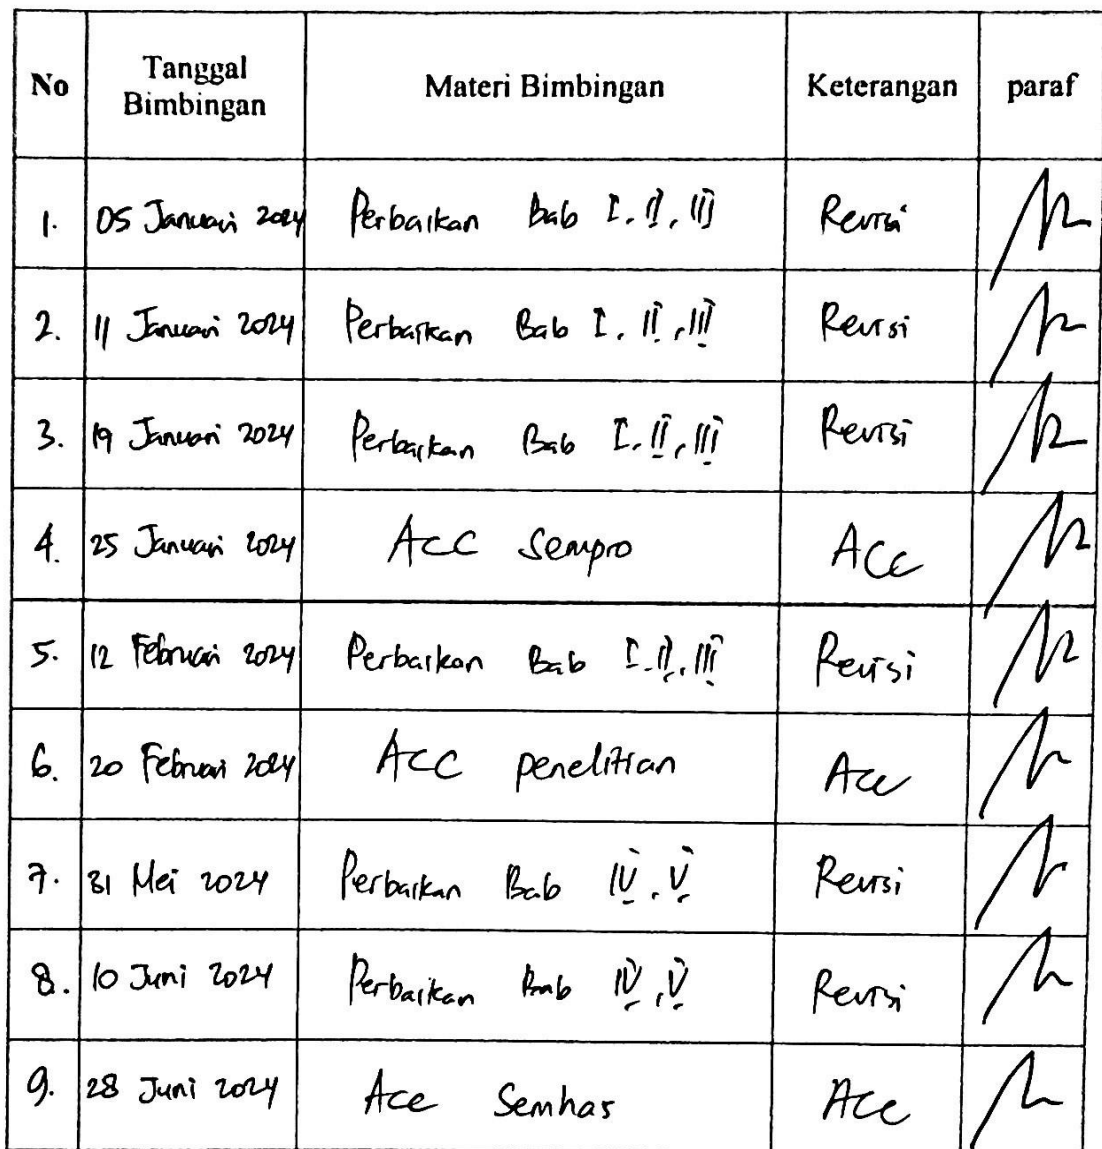 No Tanggal Bimbingan Materi Bimbingan Keterangan paraf
1. 05 Januari 2024 Perbaikan Bab I, II, III Revisi
2. 11 Januari 2024 Perbaikan Bab I, II, III Revisi
3. 19 Januari 2024 Perbaikan Bab I, II, III Revisi
4. 25 Januari 2024 ACC Sempro ACC
5. 12 Februari 2024 Perbaikan Bab I, II, III Revisi
6. 20 Februari 2024 ACC penelitian Acc
7. 31 Mei 2024 Perbaikan Bab IV, V Revisi
8. 10 Juni 2024 Perbaikan Bab IV, V Revisi
9. 28 Juni 2024 Acc Semhas Acc